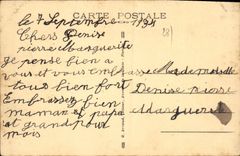 CARTE POSTALE
le 7 Septembre 1931
Chers Denise
pierre Marguerite
je pense bien a
vous et vous embrasse
tous bien fort
Embrassez bien
maman et papa
et grand pour
mois
Mademoiselle
Denise pierre
Marguerit